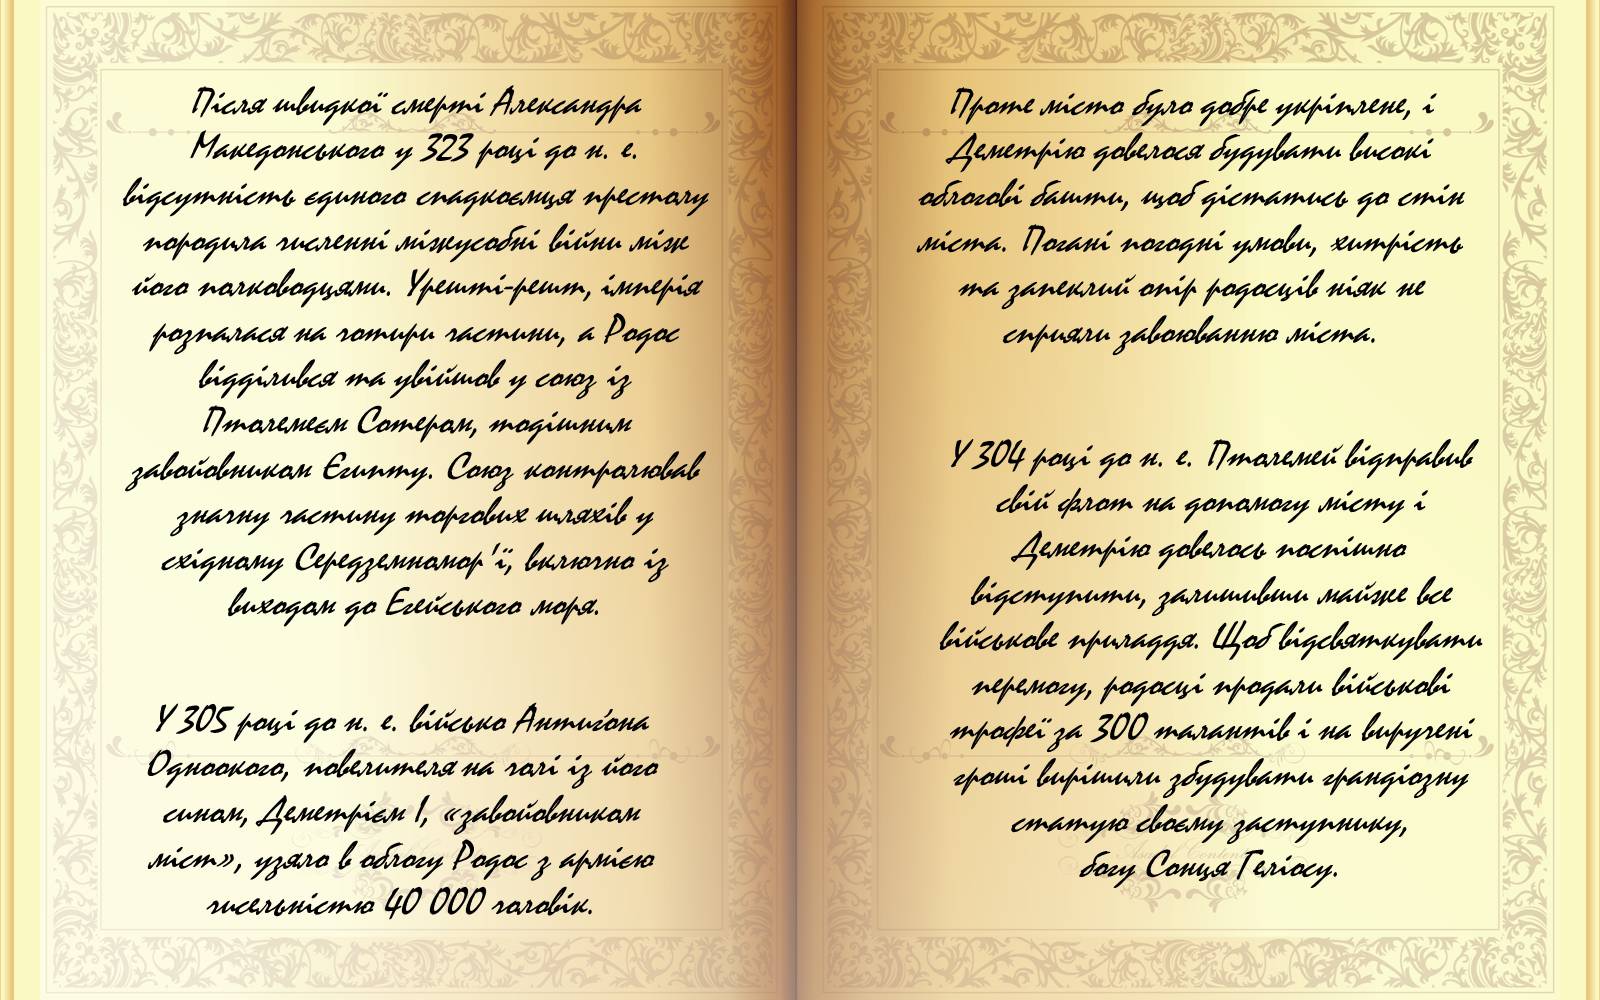 Після швидкої смерті Александра
Македонського у 323 році до н. е.
відсутність єдиного спадкоємця престолу
породила численні міжусобні війни між
його полководцями. Урешті-решт, імперія
розпалася на чотири частини, а Родос
відділився та увійшов у союз із
Птолемеєм Сотером, тодішним
завойовником Єгипту. Союз контролював
значну частину торгових шляхів у
східному Середземномор'ї, включно із
виходом до Егейського моря.
У 305 році до н. е. військо Антигона
Одноокого, повелителя на чолі із його
сином, Деметрієм I, «завойовником
міст», узяло в облогу Родос з армією
чисельністю 40 000 чоловік.
Проте місто було добре укріплене, і
Деметрію довелося будувати високі
облогові башти, щоб дістатись до стін
міста. Погані погодні умови, хитрість
та запеклий опір родосців ніяк не
сприяли завоюванню міста.
У 304 році до н. е. Птолемей відправив
свій флот на допомогу місту і
Деметрію довелось поспішно
відступити, залишивши майже все
військове приладдя. Щоб відсвяткувати
перемогу, родосці продали військові
трофеї за 300 талантів і на виручені
гроші вирішили збудувати грандіозну
статую своєму заступнику,
богу Сонця Геліосу.